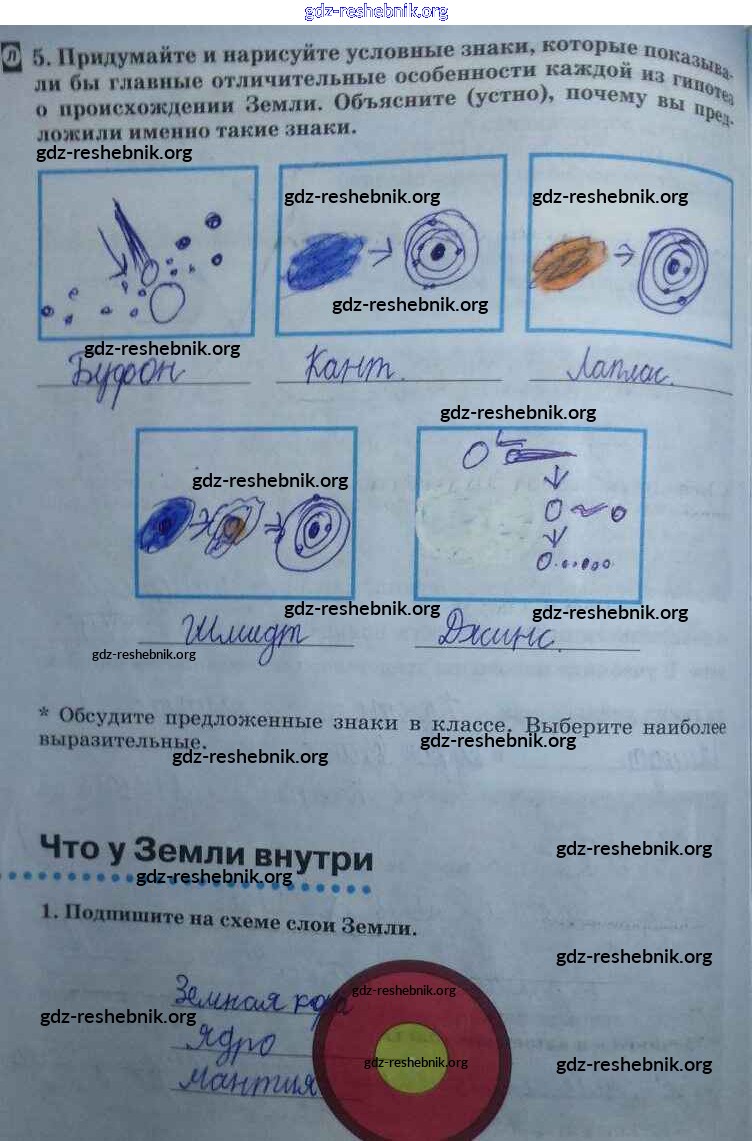 gdz-reshebnik.org
л 5. Придумайте и нарисуйте условные знаки, которые показыва-
ли бы главные отличительные особенности каждой из гипотез
о происхождении Земли. Объясните (устно), почему вы пред-
ложили именно такие знаки.
gdz-reshebnik.org
gdz-reshebnik.org
gdz-reshebnik.org
gdz-reshebnik.org
gdz-reshebnik.org
Бюфон
Кант.
Лаплас.
gdz-reshebnik.org
gdz-reshebnik.org
gdz-reshebnik.org
gdz-reshebnik.org
Шмидт
Джинс.
gdz-reshebnik.org
* Обсудите предложенные знаки в классе. Выберите наиболее
выразительные.
gdz-reshebnik.org
gdz-reshebnik.org
Что у Земли внутри
gdz-reshebnik.org
gdz-reshebnik.org
1. Подпишите на схеме слои Земли.
gdz-reshebnik.org
Земная кора
gdz-reshebnik.org
gdz-reshebnik.org
Ядро
gdz-reshebnik.org
gdz-reshebnik.org
Мантия